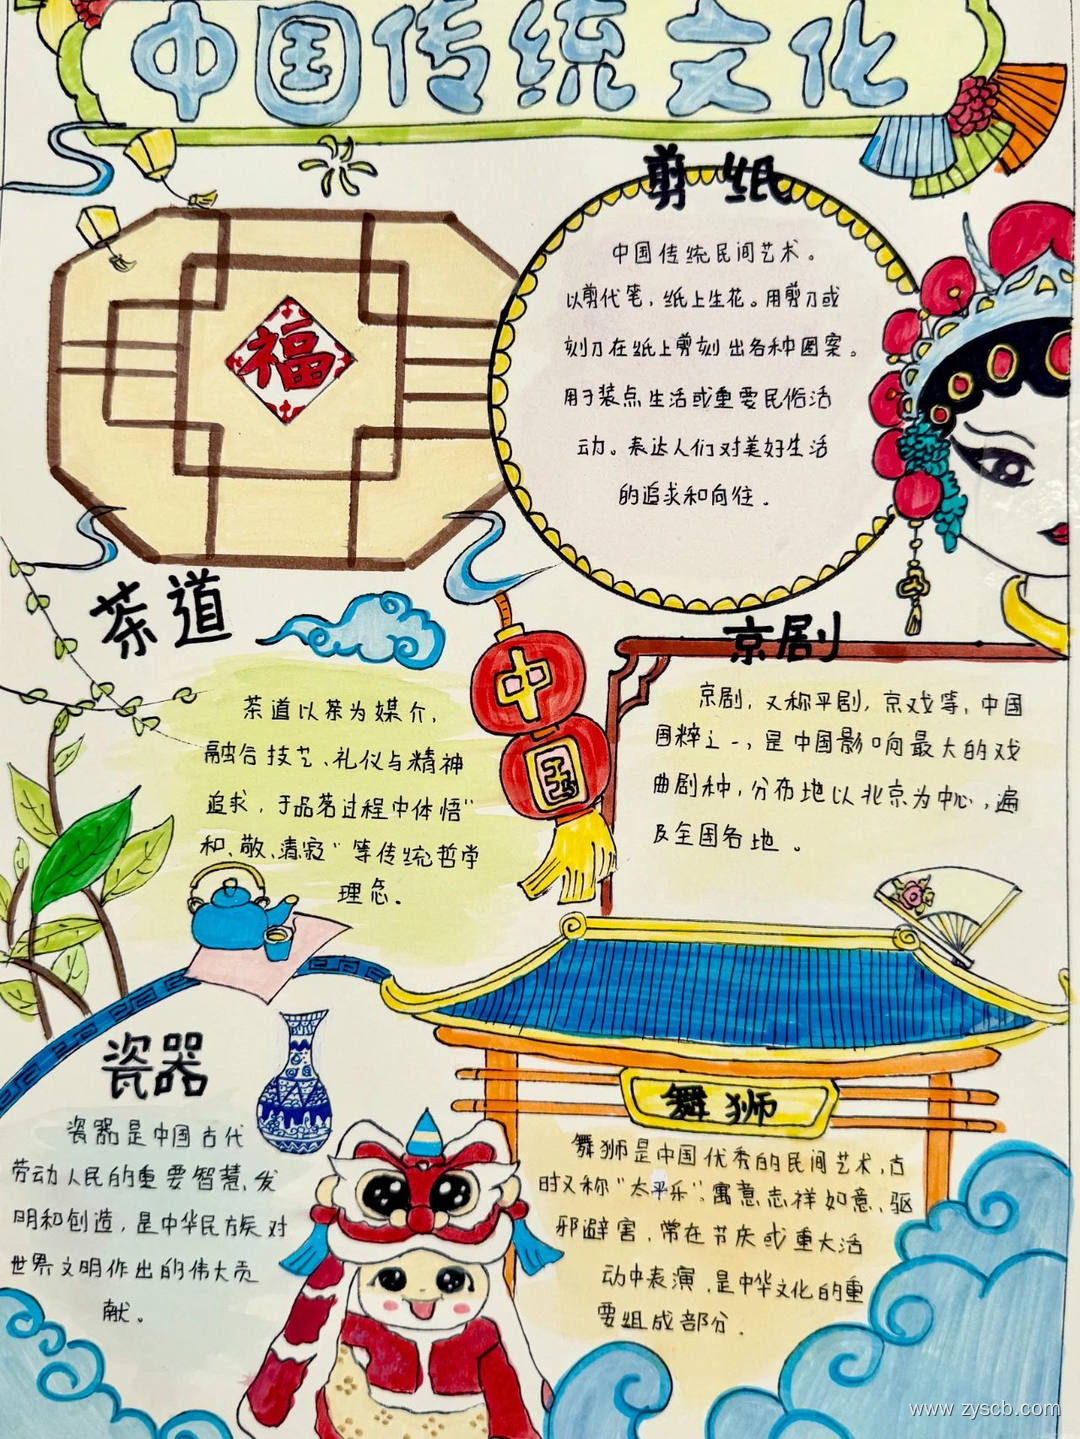 中国传统文化
福
剪纸
中国传统民间艺术。
以剪代笔，纸上生花。用剪刀或
刻刀在纸上剪刻出各种图案。
用于装点生活或重要民俗活
动。表达人们对美好生活
的追求和向往.
茶道
茶道以茶为媒介,
融合技艺、礼仪与精神
追求，于品茗过程中体悟"
和、敬、清寂"等传统哲学
理念.
中国
京剧
京剧，又称平剧，京戏等，中国
国粹之一，是中国影响最大的戏
曲剧种，分布地以北京为中心，遍
及全国各地。
瓷器
瓷器是中国古代
劳动人民的重要智慧、发
明和创造，是中华民族对
世界文明作出的伟大贡
献。
舞狮
舞狮是中国优秀的民间艺术,古
时又称"太平乐"，寓意志祥如意、驱
邪避害，常在节庆或重大活
动中表演，是中华文化的重
要组成部分.
www.zyscb.com